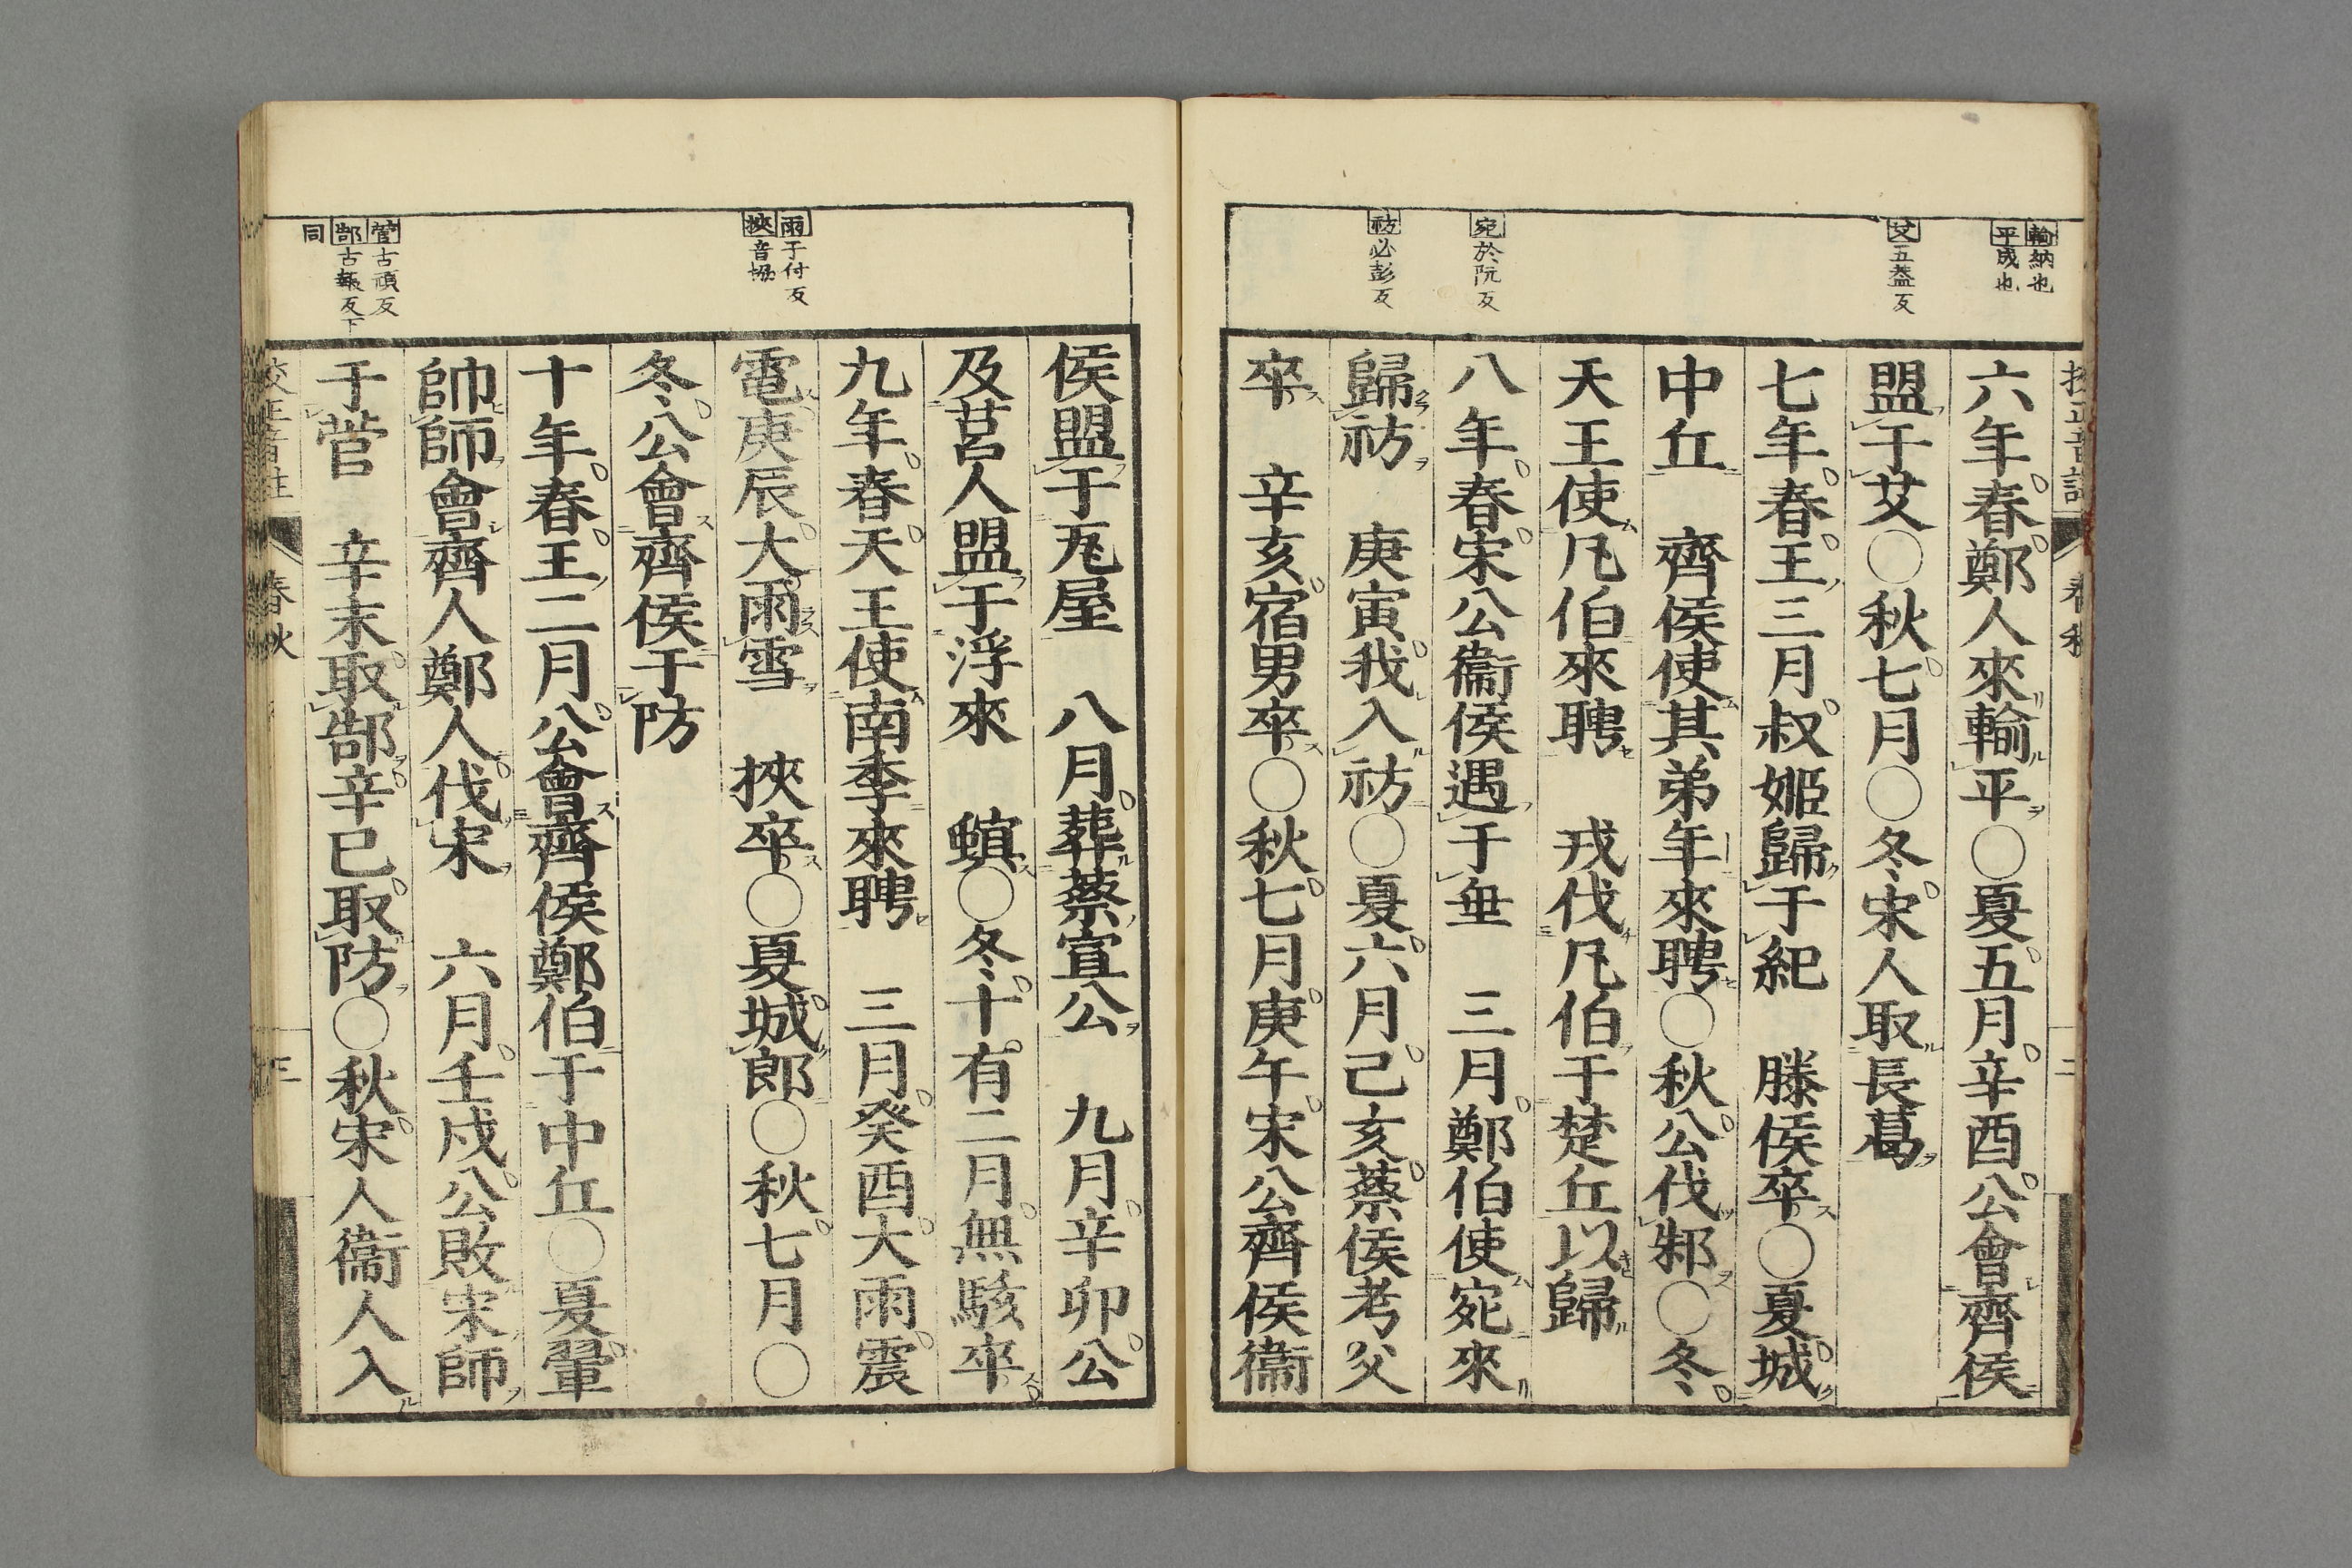 輸納也
平成也
艾五蓋反
宛於阮反
祊必彭反
六年春鄭人來輸平○夏五月辛酉公會齊侯
盟于艾○秋七月○冬宋人取長葛
七年春王三月叔姬歸于紀　滕侯卒○夏城
中丘　齊侯使其弟年來聘○秋公伐邾○冬
天王使凡伯來聘　戎伐凡伯于楚丘以歸
八年春宋公衞侯遇于垂　三月鄭伯使宛來
歸祊　庚寅我入祊○夏六月己亥蔡侯考父
卒　辛亥宿男卒○秋七月庚午宋公齊侯衞
雨于付反
挾音協
菅古頑反
郜古報反下
同
侯盟于瓦屋　八月葬蔡宣公　九月辛卯公
及莒人盟于浮來　螟○冬十有二月無駭卒
九年春天王使南季來聘　三月癸酉大雨震
電庚辰大雨雪　挾卒○夏城郎○秋七月○
冬公會齊侯于防
十年春王二月公會齊侯鄭伯于中丘○夏翬
帥師會齊人鄭人伐宋　六月壬戌公敗宋師
于菅　辛未取郜辛巳取防○秋宋人衞人入
校正音註
春秋
三